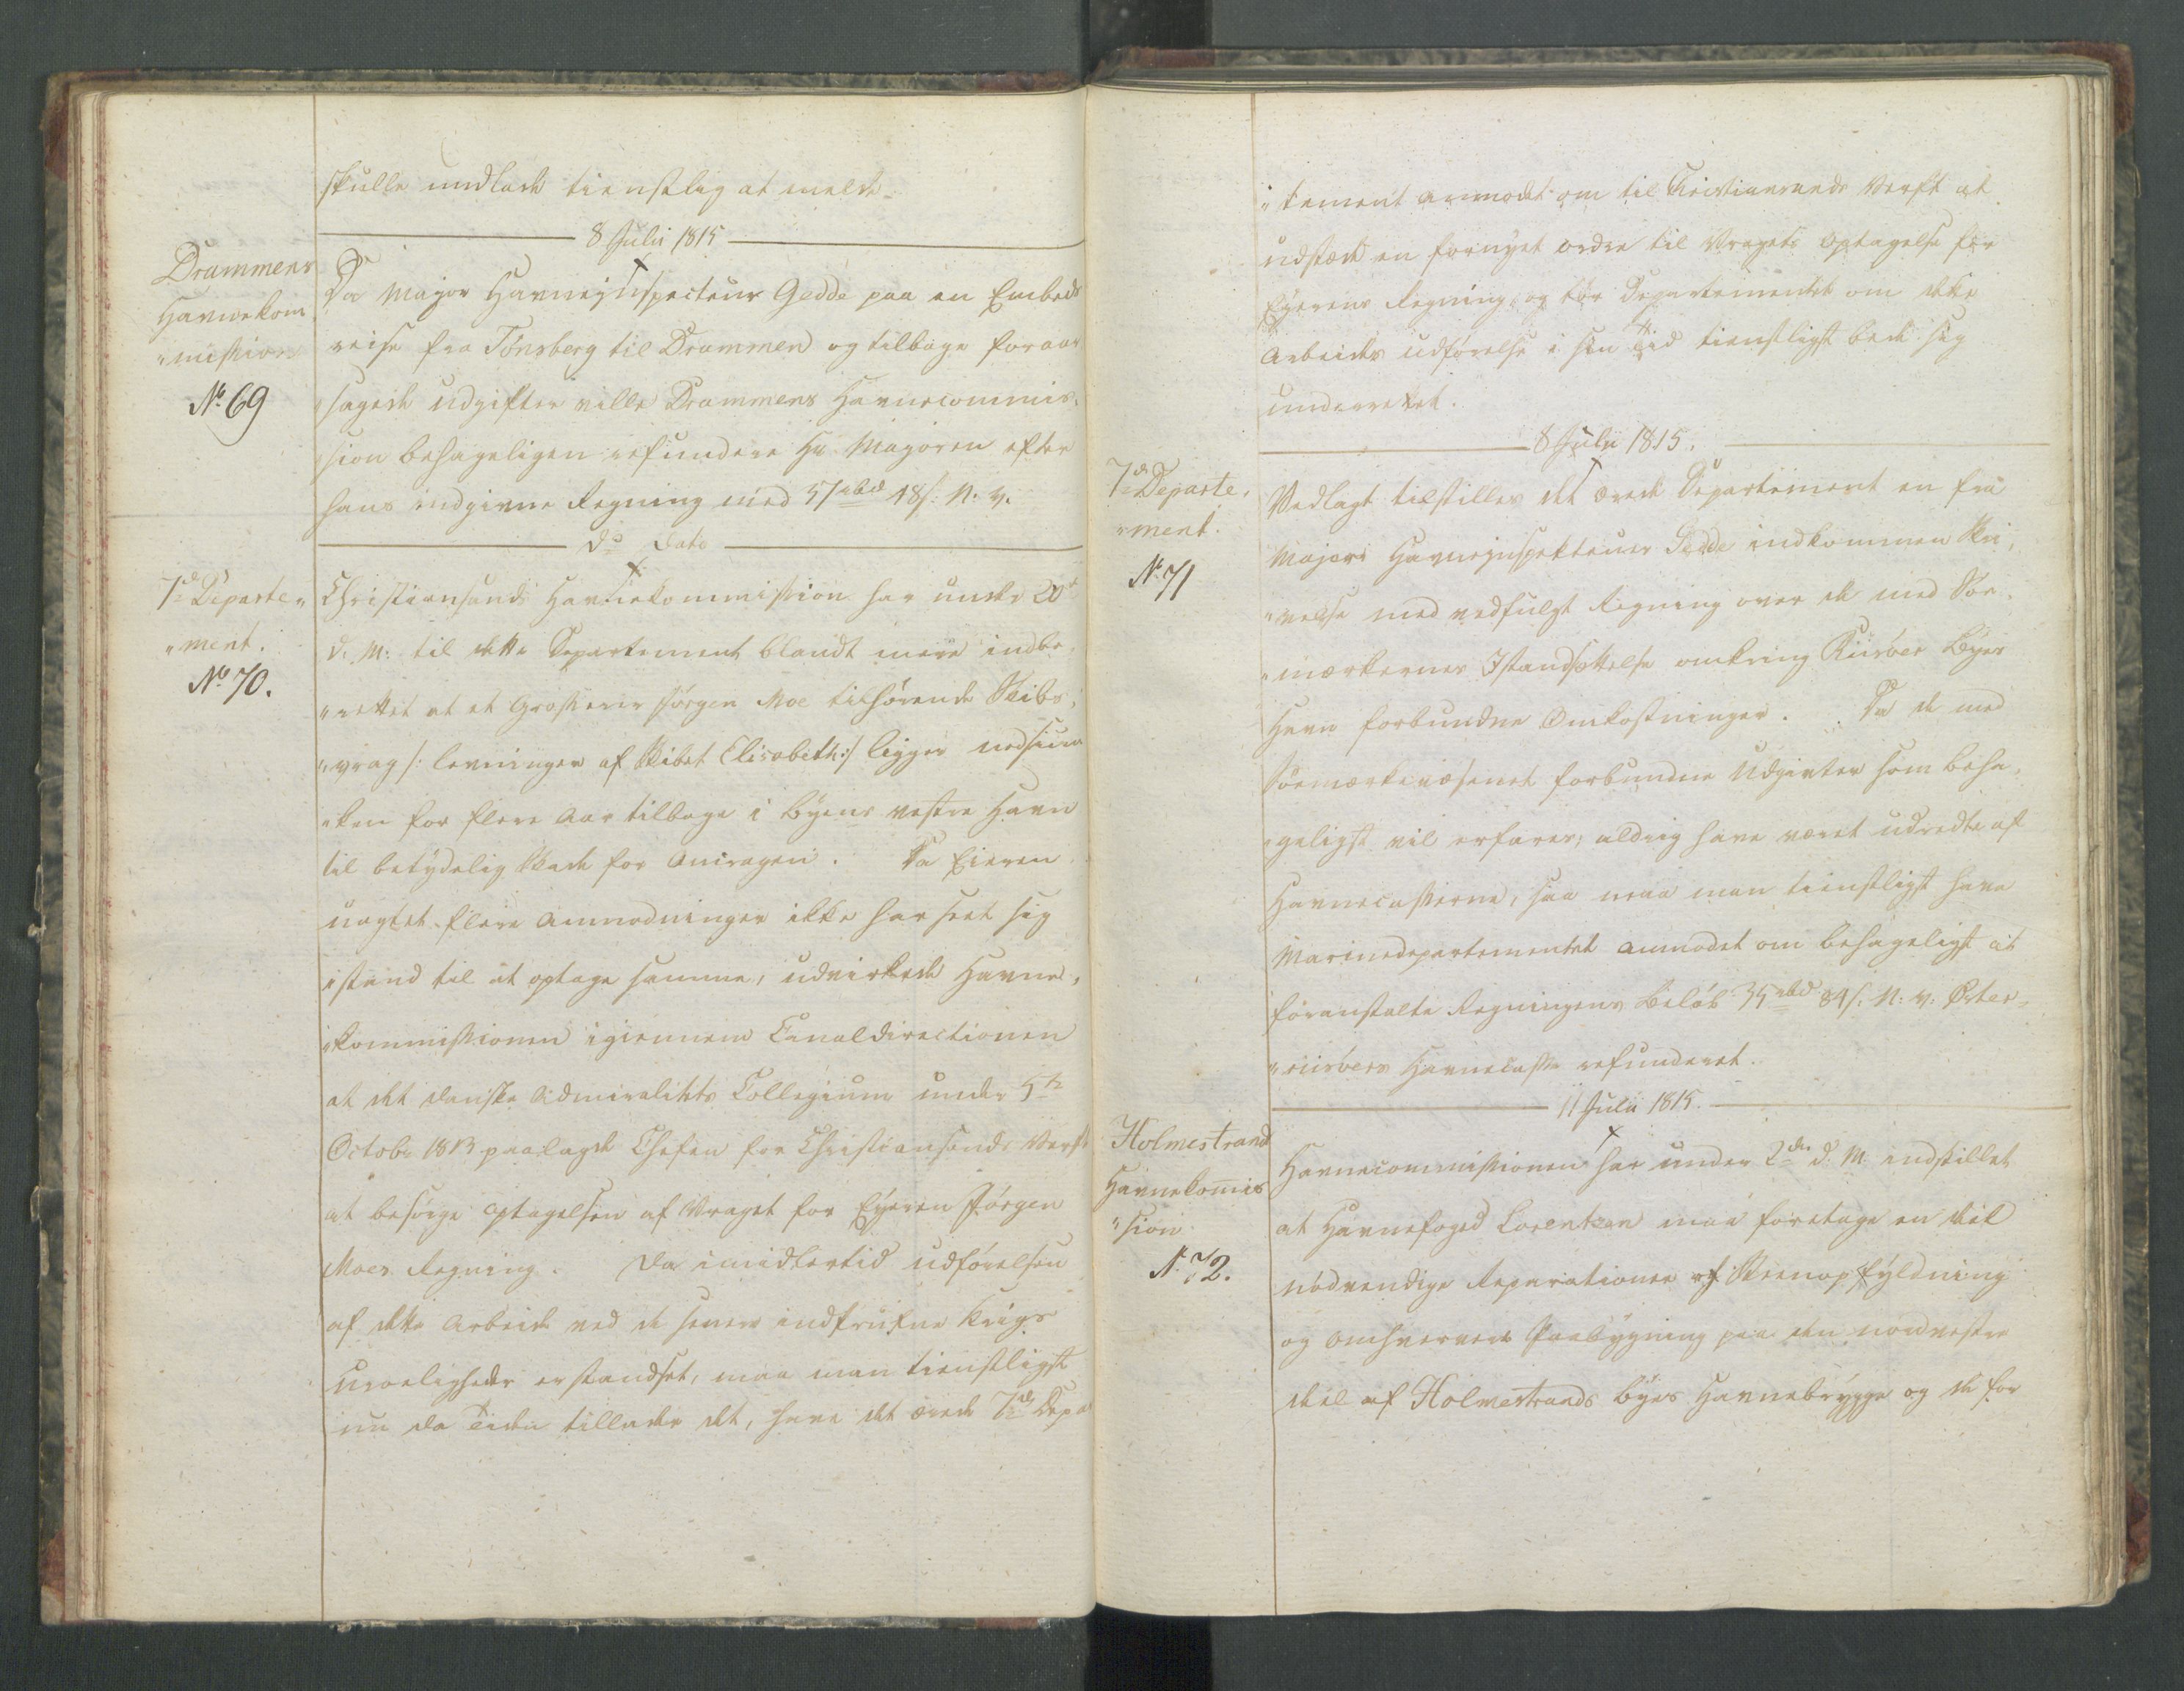 skulle undlade tienstlig at melde.
8 Julii 1815
Drammens
Havnekom
"mission
No 69
Da Major Havneinspecteur Gedde paa en Embeds
reise fra Tönsberg til Drammen og tilbage foraar
sagede udgifter ville Drammens Havnecommis,
sion behageligen refundere Hr. Majoren efter
hans indgivne Regning med 57 rbd 18 s: N. v.
do Dato
7de Departe"
"ment.
No 70.
Christiansands Havnekommission har under 20de
d. M: til dette Departement blandt mere indbe,
"rettet at et Grosserer Jörgen Moe tilhörende Skibs,
"vrag /: levninger af Skibet Elisabeth:/ ligger nedsiun
"ken for flere Aar tilbage i Byens vestre Havn
til betydelig Skade for Anvragen. Da Eieren
uagtet flere Anmodninger ikke har seet sig
istand til at optage samme, udvirkede Havne,
"kommissionen igiennem Canaldirectionen
at det danske Admiralitets Collegium under 5te
Octobr 1813 paalagde Chefen for Christiansands Verft
at besörge Optagelsen af Vraget for Eyeren Jörgen
Moes Regning. Da imidlertid udförelsen
af dette Arbeide ved de senere indtrufne Krigs
uroeligheder er standset, maa man tienstligst
nu da Tiden tillader det, have det ærede 7de Depar
"tement anmodet om til Christiansands Verft at
udstæde en fornyet ordre til Vragets Optagelse for
Eyerens Regning, og tör Departementet om dette
Arbeides udförelse i sin Tid tienstligst bede sig
underrettet.
8 Julii 1815.
7de Departe,
"ment.
No 71
Vedlagt tilstilles det ærede Departement en fra
Major Havneinspekteur Gedde indkommen Skri,
"velse med vedfulgt Regning over de med Söe,
"mærkernes Istandsættelse omkring Riisöer Byes
Havn forbundne Omkostninger. Da de med
Söemærkevæsenet forbundne Udgivter som beha,
"geligst vil erfares, aldrig have været udredte af
Havnecasserne, saa maa man tienstligst have
Marinedepartementet anmodet om behageligst at
foranstalte Regningens Belöb 35 rbd 84 s. N: v: Öster,
"riisöers Havnecasse refunderet.
11 Julii 1815.
Holmestrand
Havnekomis
"sion
No 72.
Havnecommissionen har under 2den d. M. indstillet
at Havnefoged Lorentzen maa foretage en deel
nödvendige Reparationer af Steenopfyldning
og omhvervede Paabygning paa den nordvestre
deel af Holmestrands Byes Havnebrygge og de for